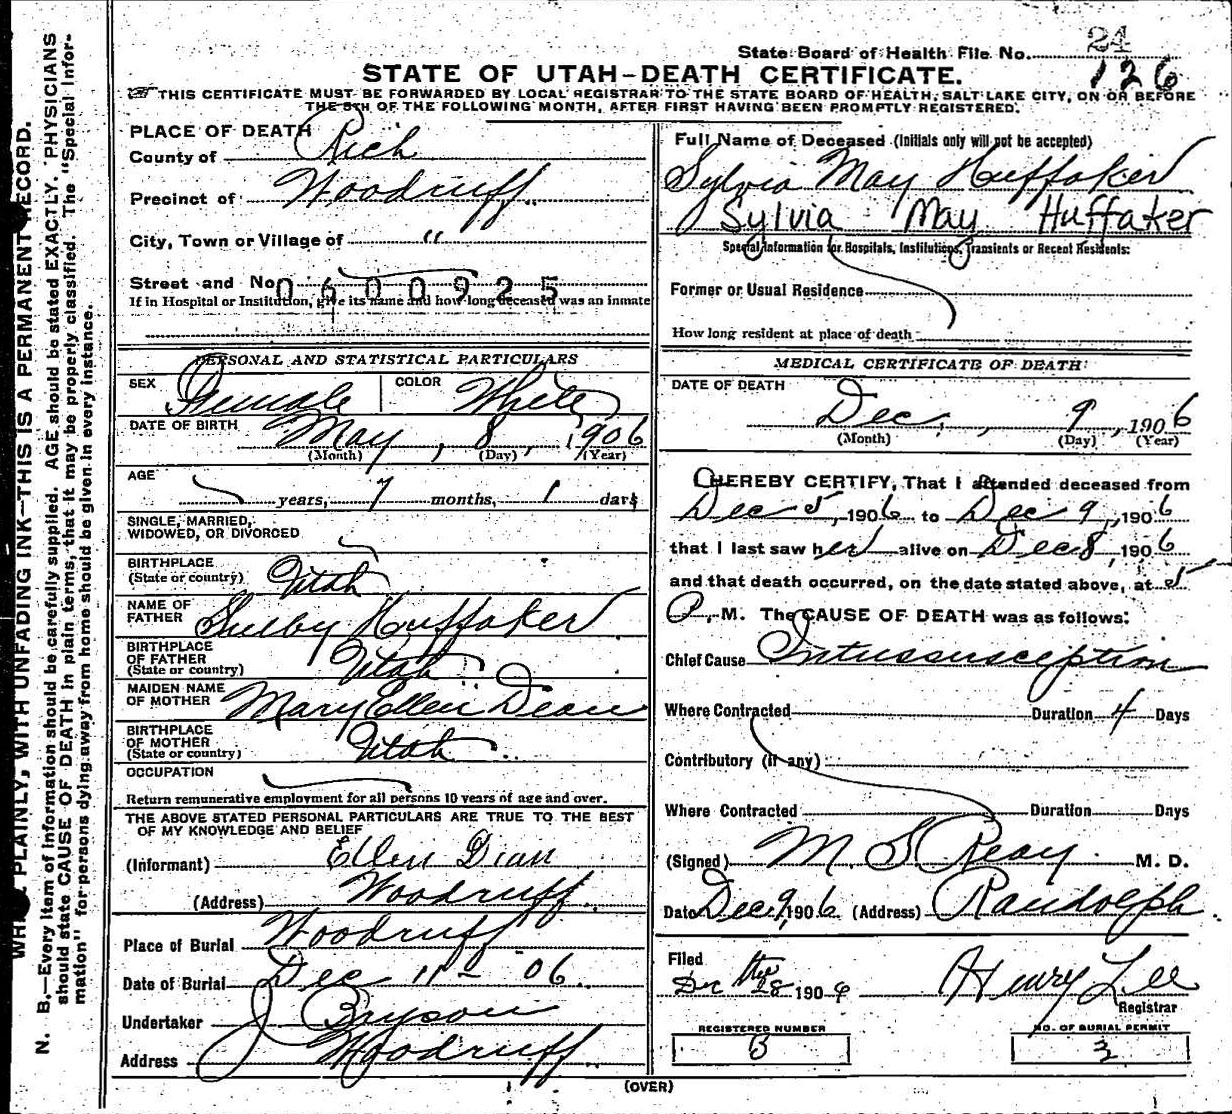 State Board of Health File No. 24
126
STATE OF UTAH-DEATH CERTIFICATE.
THIS CERTIFICATE MUST BE FORWARDED BY LOCAL REGISTRAR TO THE STATE BOARD OF HEALTH, SALT LAKE CITY, ON OR BEFORE
THE 5TH OF THE FOLLOWING MONTH, AFTER FIRST HAVING BEEN PROMPTLY REGISTERED.
PLACE OF DEATH
County of Rich
Precinct of Woodruff
City, Town or Village of "
Street and No.
0600925
If in Hospital or Institution, give its name and how long deceased was an inmate
PERSONAL AND STATISTICAL PARTICULARS
SEX Female COLOR White
DATE OF BIRTH May, 8, 1906
(Month) (Day) (Year)
AGE
years, 7 months, 1 days
SINGLE, MARRIED,
WIDOWED, OR DIVORCED
BIRTHPLACE
(State or country) Utah
NAME OF
FATHER Shelby Huffaker
BIRTHPLACE
OF FATHER
(State or country) Utah
MAIDEN NAME
OF MOTHER Mary Ellen Dean
BIRTHPLACE
OF MOTHER
(State or country) Utah
OCCUPATION
Return remunerative employment for all persons 10 years of age and over.
THE ABOVE STATED PERSONAL PARTICULARS ARE TRUE TO THE BEST
OF MY KNOWLEDGE AND BELIEF
(Informant) Ellen Dean
(Address) Woodruff
Place of Burial Woodruff
Date of Burial Dec 11 - 06
Undertaker J Bryson
Address Woodruff
Full Name of Deceased (Initials only will not be accepted)
Sylvia May Huffaker
Sylvia May Huffaker
Special Information for Hospitals, Institutions, Transients or Recent Residents:
Former or Usual Residence
How long resident at place of death
MEDICAL CERTIFICATE OF DEATH
DATE OF DEATH
Dec, 9, 1906
(Month) (Day) (Year)
I HEREBY CERTIFY, That I attended deceased from
Dec 5, 1906 to Dec 9, 1906
that I last saw her alive on Dec 8, 1906
and that death occurred, on the date stated above, at 5
P. M. The CAUSE OF DEATH was as follows:
Chief Cause Intussusception
Where Contracted Duration 4 Days
Contributory (if any)
Where Contracted Duration Days
(Signed) M. S Reay M. D.
Date Dec. 9, 1906 (Address) Randolph
Filed
Dec the 28 1906 Henry Lee
Registrar
REGISTERED NUMBER
3
NO. OF BURIAL PERMIT
3
(OVER)
WRITE PLAINLY, WITH UNFADING INK—THIS IS A PERMANENT RECORD.
N. B.—Every item of information should be carefully supplied. AGE should be stated EXACTLY. PHYSICIANS
should state CAUSE OF DEATH in plain terms, that it may be properly classified. The "Special Infor-
mation" for persons dying away from home should be given in every instance.